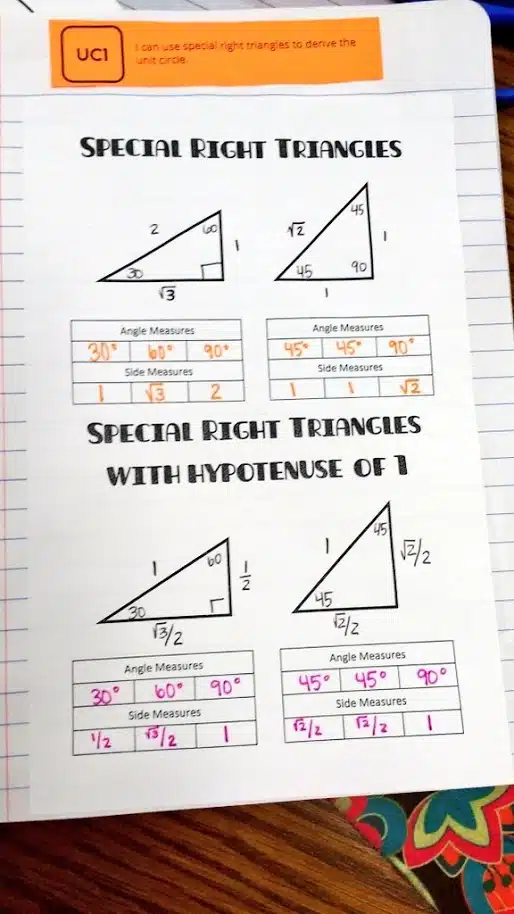 UC1
I can use special right triangles to derive the
unit circle.
SPECIAL RIGHT TRIANGLES
2
60
1
30
√3
√2
45
1
45
90
1
Angle Measures
30° 60° 90°
Side Measures
1 √3 2
Angle Measures
45° 45° 90°
Side Measures
1 1 √2
SPECIAL RIGHT TRIANGLES
WITH HYPOTENUSE OF 1
1
60
1/2
30
√3/2
1
45
√2/2
45
√2/2
Angle Measures
30° 60° 90°
Side Measures
1/2 √3/2 1
Angle Measures
45° 45° 90°
Side Measures
√2/2 √2/2 1